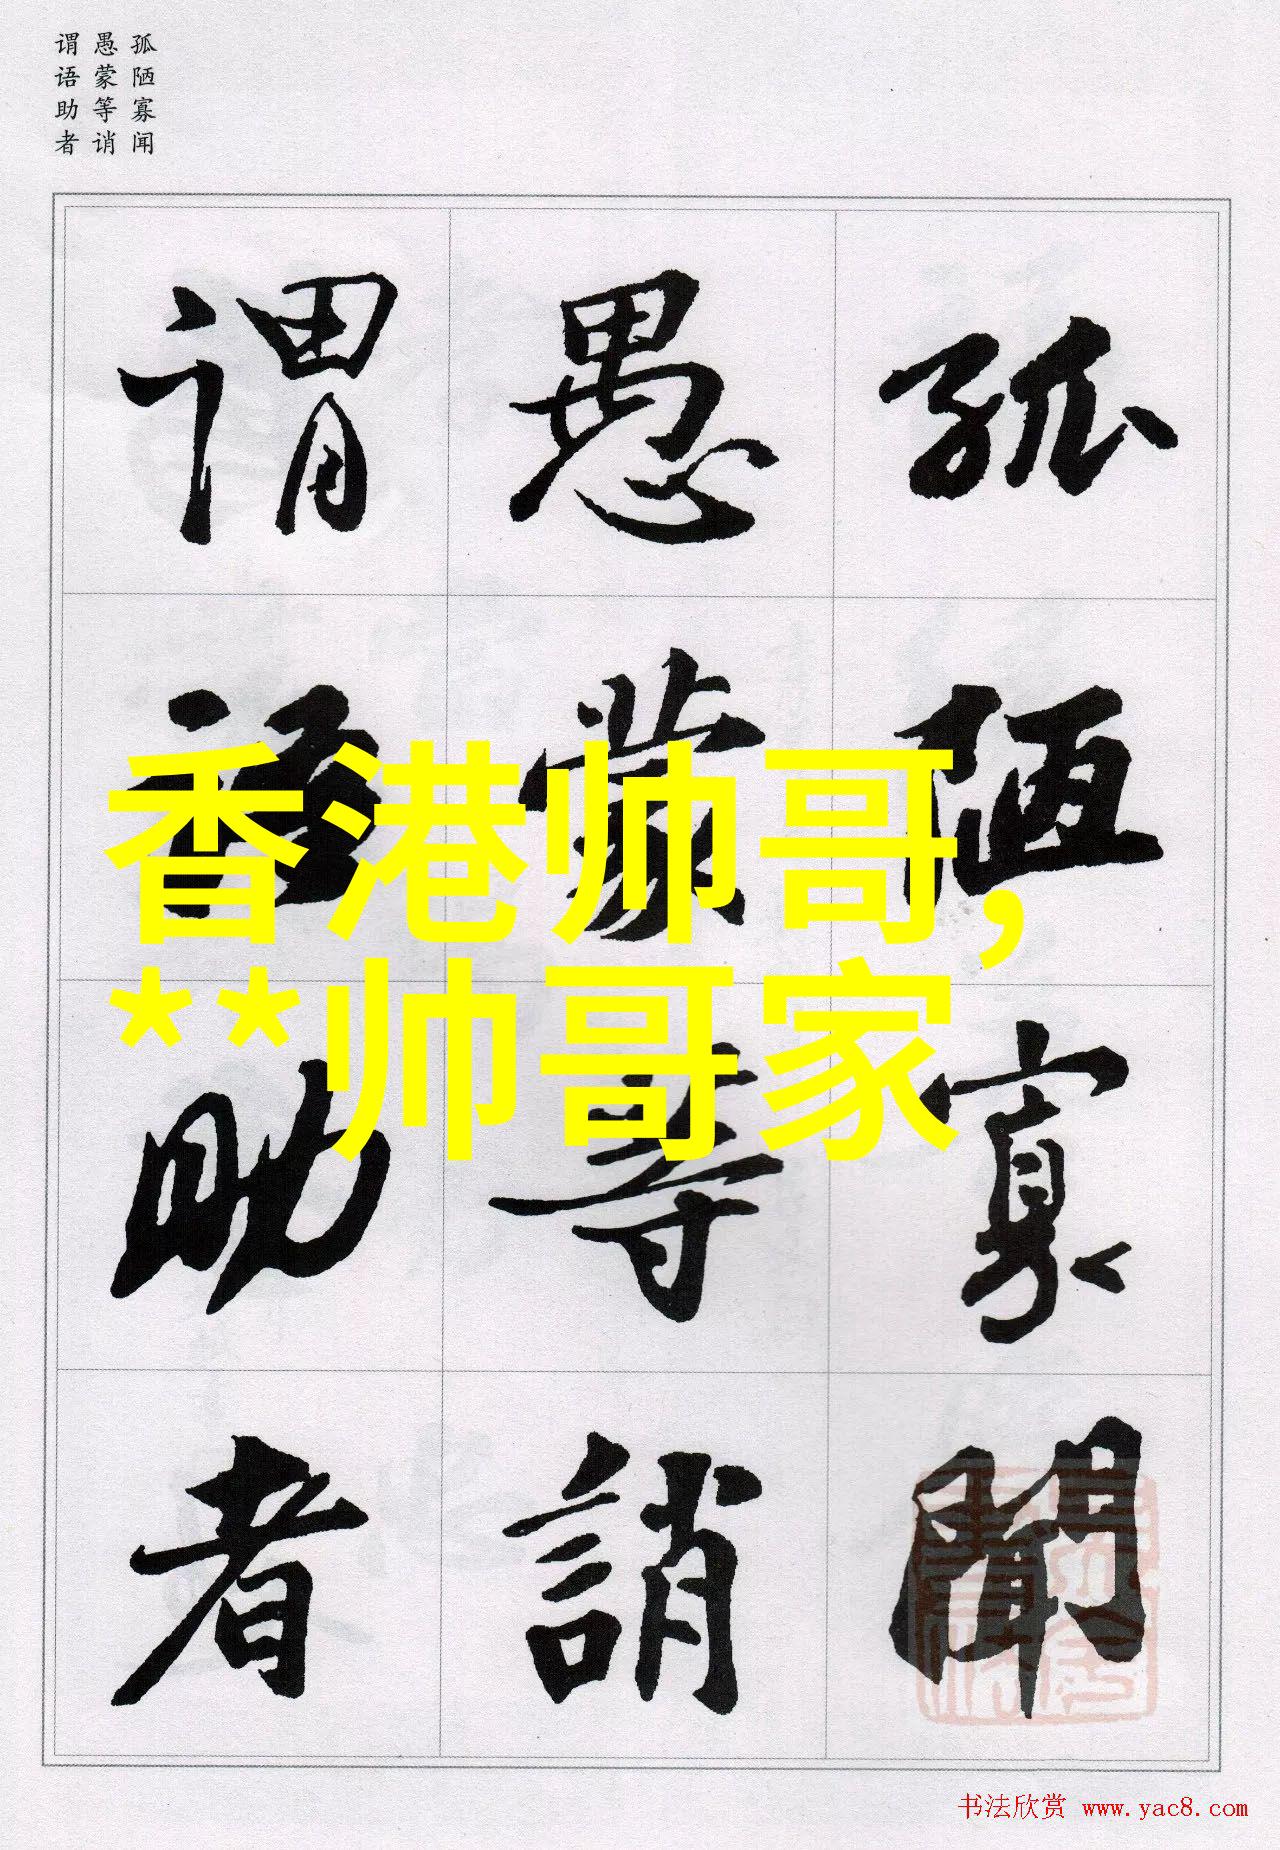 孤陋寡闻
愚蒙等诮
谓语助者
孤陋寡聞
愚蒙等誚
谓语助者
香港帅哥,
**帅哥家
书法欣赏 www.yac8.com